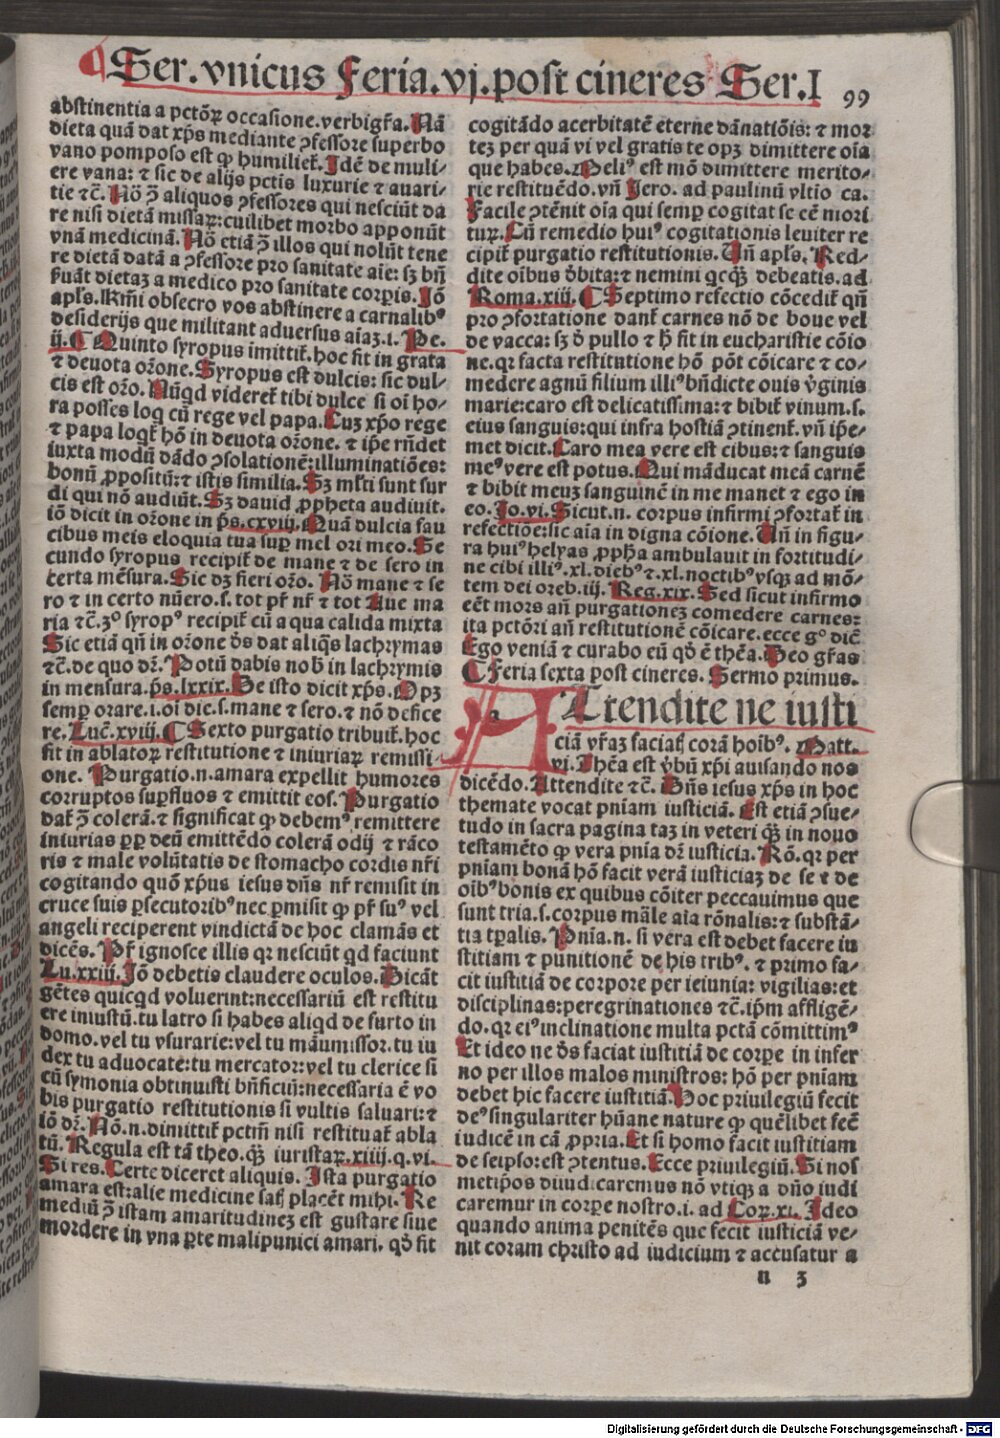 ¶ Ser. vnicus Feria. vj. post cineres Ser. I
99
abstinentia a pctōꝝ occasione. verbigr̄a. Nā
dieta quā dat xp̄s mediante ꝯfessore superbo
vano pomposo est ꝙ humilieť. Idē de muli/
ere vana: ⁊ sic de alijs pctīs luxurie ⁊ auari/
tie ⁊c̄. Nō ꝫ aliquos ꝯfessores qui nesciūt da
re nisi dietā missaꝝ: cuilibet morbo apponūt
vnā medicinā. Nō etiā ꝫ illos qui nolūt tene
re dietā datā a ꝯfessore pro sanitate aīe: sꝫ bn̄
ẜuāt dietaꝫ a medico pro sanitate corpīs. Iō
apl̄s. Kr̄mi obsecro vos abstinere a carnalibꝰ
desiderijs que militant aduersus aīaꝫ. i. Pe.
ij. ¶ Quinto syropus imittiť. hoc fit in grata
⁊ deuota oꝛōne. Syropus est dulcis: sic dul/
cis est oꝛō. Nūqd videreť tibi dulce si oī ho/
ra posses loq̄ cū rege vel papa. Cuꝫ xp̄o rege
⁊ papa loqť hō in deuota oꝛōne. ⁊ ip̄e rn̄det
iuxta modū dādo ꝯsolationē: illuminatiōes:
bonū ꝓpositū: ⁊ istis similia. Sꝫ ml̄ti sunt sur
di qui nō audiūt. Sꝫ dauid ꝓpheta audiuit.
iō dicit in oꝛōne in ps̄. cxviij. Quā dulcia fau
cibus meis eloquia tua suꝑ mel ori meo. Se
cundo syropus recipiť de mane ⁊ de sero in
certa mēsura. Sic dꝫ fieri oꝛō. Nō mane ⁊ se
ro ⁊ in certo nūero. s. tot pr̄ nr̄ ⁊ tot Aue ma
ria ⁊c̄. ꝫº syropꝰ recipiť cū aqua calida mixta
Sic etiā qn̄ in oꝛōne dꝰs dat aliq̄s lachrymas
⁊c̄. de quo dr̄. Potū dabis nob̄ in lachrymis
in mensura. ps̄. lxxix. De isto dicit xp̄s. Opꝫ
semꝑ orare. i. oī die. s. mane ⁊ sero. ⁊ nō defice
re. Luc̄. xviij. ¶ Sexto purgatio tribuiť. hoc
fit in ablatoꝝ restitutione ⁊ iniuriaꝝ remissi
one. Purgatio. n. amara expellit humores
corruptos suꝑfluos ⁊ emittit eos. Purgatio
dať ꝫ colerā. ⁊ significat ꝙ debemꝰ remittere
iniurias ꝓꝑ deū emittēdo colerā odij ⁊ rāco
ris ⁊ male volūtatis de stomacho cordis nr̄i
cogitando quō xp̄us iesus dn̄s nr̄ remisit in
cruce suis ꝑsecutoribꝰ nec ꝑmisit ꝙ pr̄ suꝰ vel
angeli reciperent vindictā de hoc clamās et
dicēs. Pr̄ ignosce illis qꝛ nesciūt qd faciunt
Lu. xxiij. Iō debetis claudere oculos. Dicāt
gētes quicqd voluerint: necessariū est restitu
ere iniustū. tu latro si habes aliqd de furto in
domo. vel tu vsurarie: vel tu māumissor. tu iu
dex tu aduocate: tu mercator: vel tu clerice si
cū symonia obtinuisti bn̄ficiū: necessaria ē vo
bis purgatio restitutionis si vultis saluari: ⁊
iō dr̄. Nō. n. dimittiť pctm̄ nisi restituať abla
tū. Regula est tā theo. q̄ꝫ iuristaꝝ. xiiij. q. vi.
Si res. Certe diceret aliquis. Ista purgatio
amara est: alie medicine satꝭ placēt mihi. Re
mediū ꝫ istam amaritudineꝫ est gustare siue
mordere in vna ꝑte malipunici amari. qd̄ fit
cogitādo acerbitatē eterne dānatiōis: ⁊ mor
teꝫ per quā vi vel gratis te opꝫ dimittere oīa
que habes. Meliꝰ est mō dimittere merito/
rie restituēdo. vn̄ Iero. ad paulinū vltio ca.
Facile ꝯtēnit oīa qui semꝑ cogitat se eē mori
tuꝝ. Cū remedio huiꝰ cogitationis leuiter re
cipiť purgatio restitutionis. Un̄ apl̄s. Red/
dite oībus d̄bita: ⁊ nemini qcq̄ꝫ debeatis. ad
Roma. xiij. ¶ Septimo refectio cōcediť qn̄
pro ꝯfortatione danť carnes nō de boue vel
de vacca: sꝫ d̓ pullo ⁊ h̄ fit in eucharistie cōio
ne. qꝛ facta restitutione hō pōt cōicare ⁊ co/
medere agnū filium illiꝰ bn̄dicte ouis v̓ginis
marie: caro est delicatissima: ⁊ bibiť vinum. s.
eius sanguis: qui infra hostiā ꝯtinenť. vn̄ ip̄e/
met dicit. Caro mea vere est cibus: ⁊ sanguis
meꝰ vere est potus. Qui māducat meā carnē
⁊ bibit meuꝫ sanguinē in me manet ⁊ ego in
eo. Jo. vi. Sicut. n. corpus infirmi ꝯfortať in
refectiōe: sic aīa in digna cōione. Un̄ in figu/
ra huiꝰ helyas ꝓph̄a ambulauit in fortitudi/
ne cibi illiꝰ. xl. diebꝰ ⁊. xl. noctibꝰ vsqꝫ ad mō/
tem dei oreb. iij. Reg. xix. Sed sicut infirmo
eēt mors an̄ purgationeꝫ comedere carnes:
ita pctōri an̄ restitutionē cōicare. ecce gº dic̄
Ego veniā ⁊ curabo eū qd̄ ē thēa. Deo gr̄as
¶ Feria sexta post cineres. Sermo primus.
Attendite ne iusti
ciā vr̄aꝫ faciatꝭ corā hoībꝰ. Matt.
vi. Thēa est v̓bū xp̄i auisando nos
dicēdo. Attendite ⁊c̄. Dn̄s iesus xp̄s in hoc
themate vocat pn̄iam iusticiā. Est etiā ꝯsue/
tudo in sacra pagina taꝫ in veteri q̄ꝫ in nouo
testamēto ꝙ vera pn̄ia dr̄ iusticia. Rō. qꝛ per
pn̄iam bonā hō facit verā iusticiaꝫ de se ⁊ de
oībꝰ bonis ex quibus cōiter peccauimus que
sunt tria. s. corpus māle aīa rōnalis: ⁊ substā/
tia tꝑalis. Pn̄ia. n. si vera est debet facere iu
stitiam ⁊ punitionē de his tribꝰ. ⁊ primo fa/
cit iustitiā de corpore per ieiunia: vigilias: et
disciplinas: peregrinationes ⁊c̄. ip̄m affligē/
do. qꝛ eiꝰ inclinatione multa pctā cōmittimꝰ
Et ideo ne dꝰs faciat iustitiā de corꝑe in infer
no per illos malos ministros: hō per pn̄iam
debet hic facere iustitiā. Hoc priuilegiū fecit
deꝰ singulariter hūane nature ꝙ quēlibet fec̄
iudicē in cā ꝓpria. Et si homo facit iustitiam
de seipso: est ꝯtentus. Ecce priuilegiū. Si nos
metip̄os diiudicaremus nō vtiqꝫ a dn̄o iudi
caremur in corꝑe nostro. i. ad Coꝝ. xi. Ideo
quando anima penitēs que fecit iusticiā ve/
nit coram christo ad iudicium ⁊ accusatur a
n 3
Digitalisierung gefördert durch die Deutsche Forschungsgemeinschaft - DFG